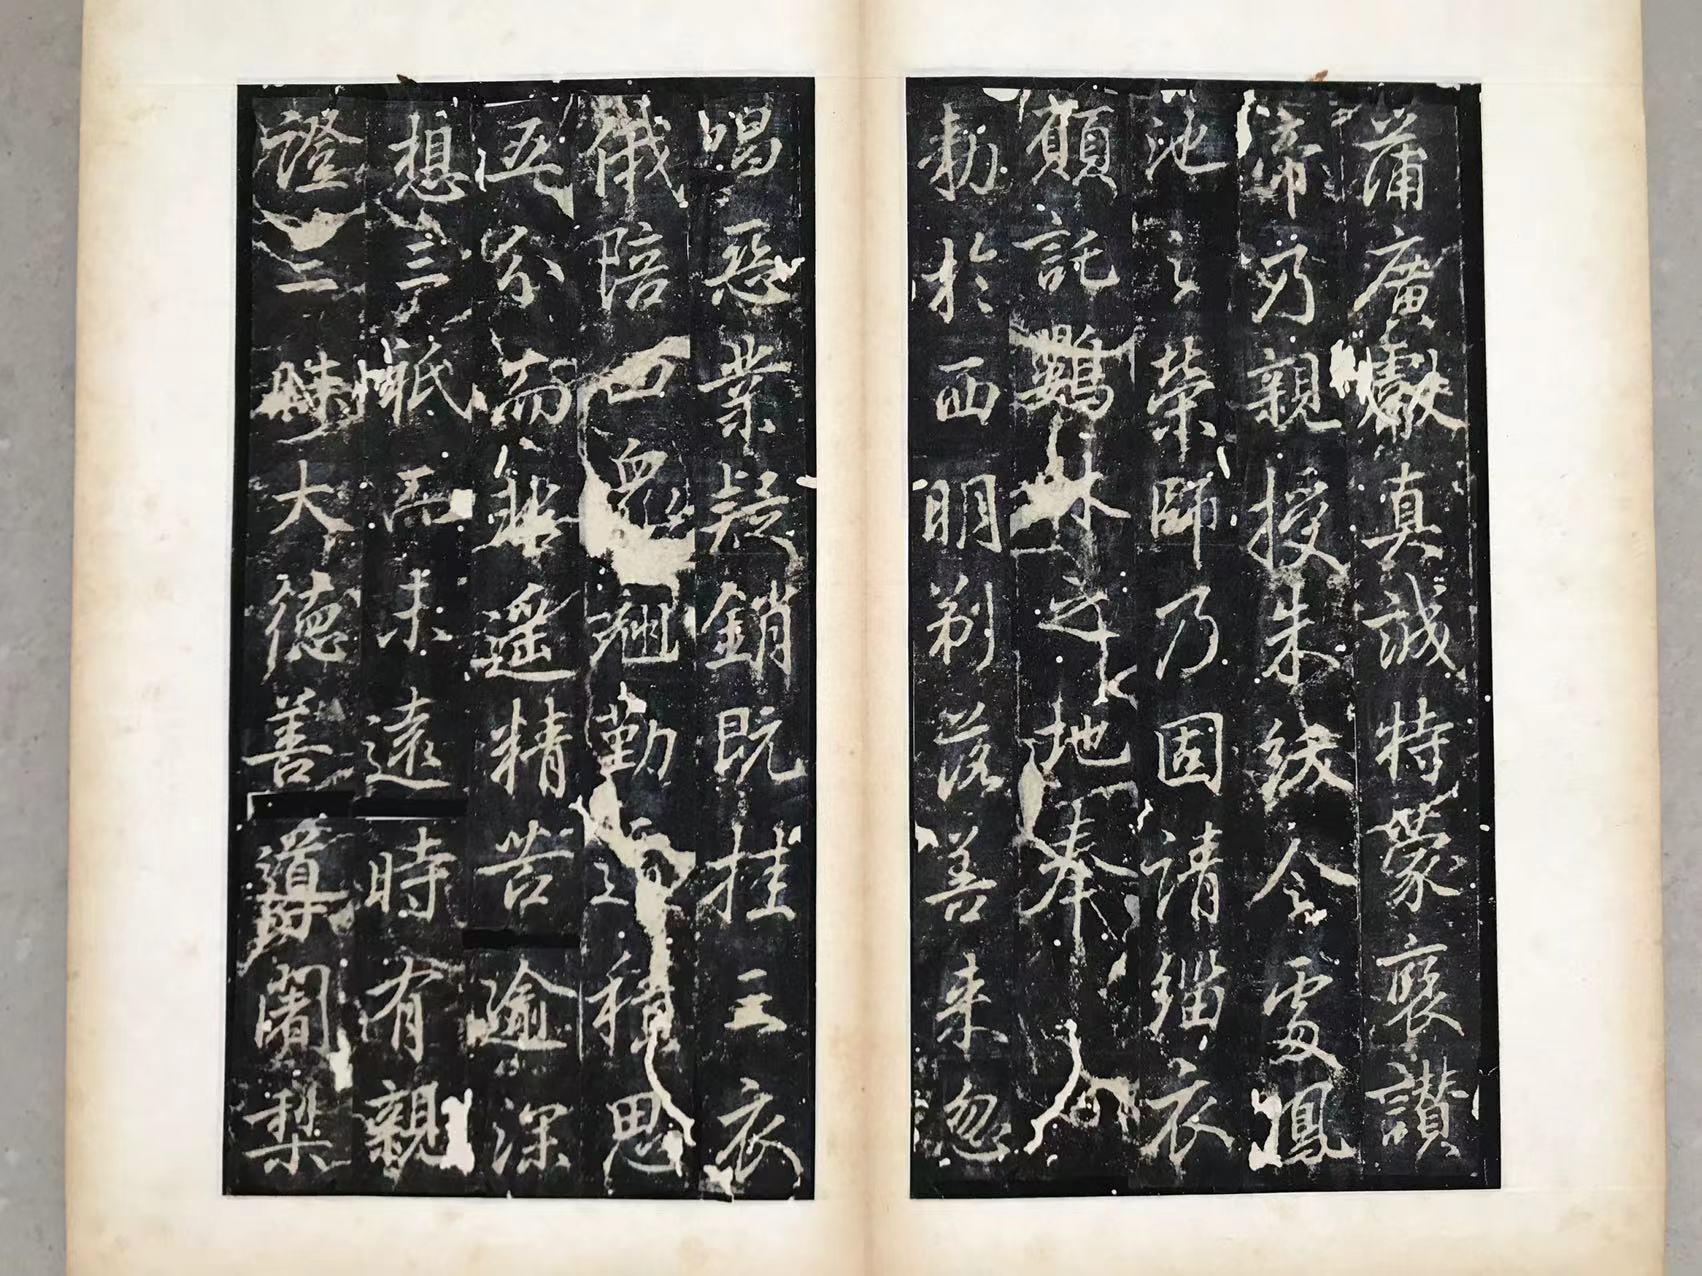 蒲廣獻真誠特蒙褒讚
帝乃親授朱紱令處鳳
池之榮師乃固請緇衣
願託鷄林之地奉
勅於西明剃落善來忽
唱惡業疑銷既挂三衣
俄陪四眾翹勤積思
五分而非遙精苦逾深
想三祇而未遠時有親
證三昧大德善導闍梨